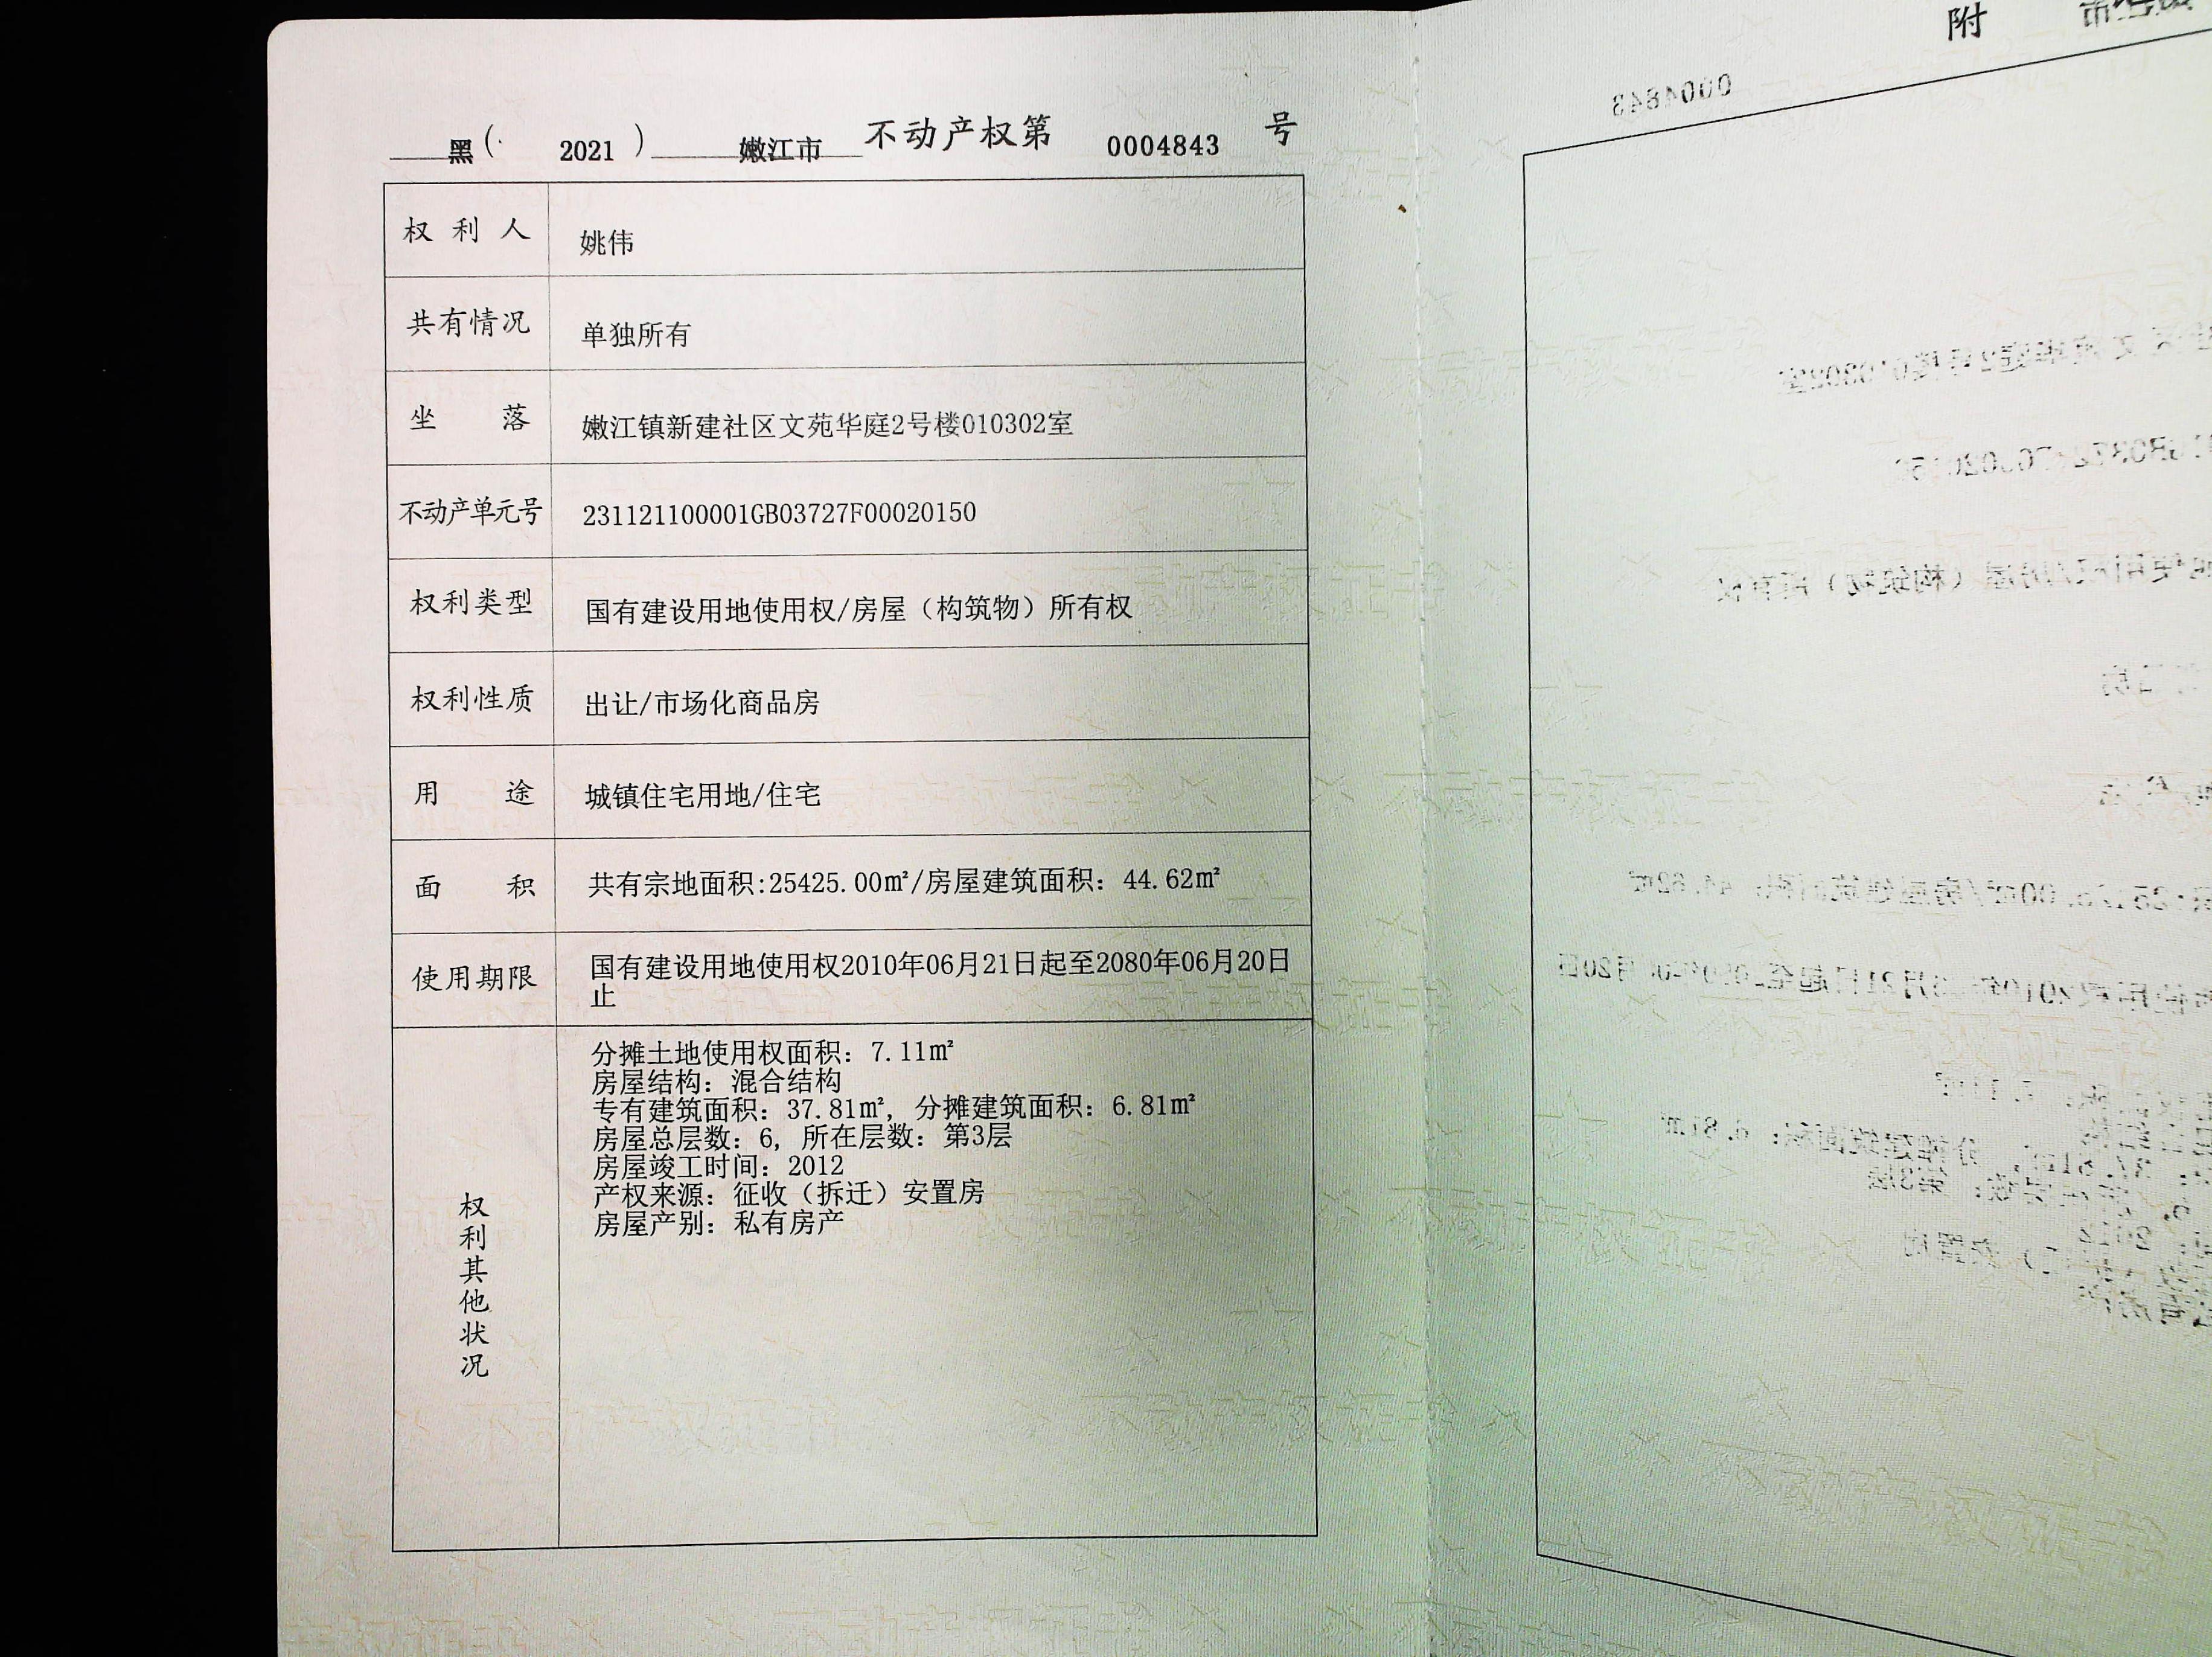 黑（ 2021 ） 嫩江市 不动产权第 0004843 号
权利人 姚伟
共有情况 单独所有
坐落 嫩江镇新建社区文苑华庭2号楼010302室
不动产单元号 231121100001GB03727F00020150
权利类型 国有建设用地使用权/房屋（构筑物）所有权
权利性质 出让/市场化商品房
用途 城镇住宅用地/住宅
面积 共有宗地面积:25425.00㎡/房屋建筑面积：44.62㎡
使用期限 国有建设用地使用权2010年06月21日起至2080年06月20日
止
权利其他状况
分摊土地使用权面积：7.11㎡
房屋结构：混合结构
专有建筑面积：37.81㎡，分摊建筑面积：6.81㎡
房屋总层数：6，所在层数：第3层
房屋竣工时间：2012
产权来源：征收（拆迁）安置房
房屋产别：私有房产
附